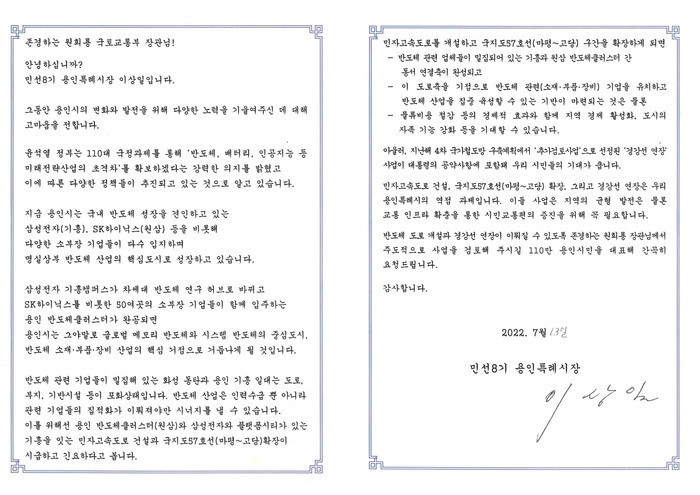 존경하는 원희룡 국토교통부 장관님!
안녕하십니까?
민선8기 용인특례시장 이상일입니다.
그동안 용인시의 변화와 발전을 위해 다양한 노력을 기울여주신 데 대해
고마움을 전합니다.
윤석열 정부는 110대 국정과제를 통해 '반도체, 배터리, 인공지능 등
미래전략산업의 초격차'를 확보하겠다는 강력한 의지를 밝혔고
이에 따른 다양한 정책들이 추진되고 있는 것으로 알고 있습니다.
지금 용인시는 국내 반도체 성장을 견인하고 있는
삼성전자(기흥), SK하이닉스(원삼) 등을 비롯해
다양한 소부장 기업들이 다수 입지하며
명실상부 반도체 산업의 핵심도시로 성장하고 있습니다.
삼성전자 기흥캠퍼스가 차세대 반도체 연구 허브로 바뀌고
SK하이닉스를 비롯한 50여곳의 소부장 기업들이 함께 입주하는
용인 반도체클러스터가 완공되면
용인시는 그야말로 글로벌 메모리 반도체와 시스템 반도체의 중심도시,
반도체 소재·부품·장비 산업의 핵심 거점으로 거듭나게 될 것입니다.
반도체 관련 기업들이 밀집해 있는 화성 동탄과 용인 기흥 일대는 도로,
부지, 기반시설 등이 포화상태입니다. 반도체 산업은 인력수급 뿐 아니라
관련 기업들의 집적화가 이뤄져야만 시너지를 낼 수 있습니다.
이를 위해선 용인 반도체클러스터(원삼)와 삼성전자와 플랫폼시티가 있는
기흥을 잇는 민자고속도로 건설과 국지도57호선(마평~고당)확장이
시급하고 긴요하다고 봅니다.
민자고속도로를 개설하고 국지도57호선(마평~고당) 구간을 확장하게 되면
- 반도체 관련 업체들이 밀집되어 있는 기흥과 원삼 반도체클러스터 간
동서 연결축이 완성되고
- 이 도로축을 기점으로 반도체 관련(소재·부품·장비) 기업을 유치하고
반도체 산업을 집중 육성할 수 있는 기반이 마련되는 것은 물론
- 물류비용 절감 등의 경제적 효과와 함께 지역 경제 활성화, 도시의
자족 기능 강화 등을 기대할 수 있습니다.
아울러, 지난해 4차 국가철도망 구축계획에서 '추가검토사업'으로 선정된 '경강선 연장'
사업이 대통령의 공약사항에 포함돼 우리 시민들의 기대가 큽니다.
민자고속도로 건설, 국지도57호선(마평~고당) 확장, 그리고 경강선 연장은 우리
용인특례시의 역점 과제입니다. 이들 사업은 지역의 균형 발전은 물론
교통 인프라 확충을 통한 시민교통편의 증진을 위해 꼭 필요합니다.
반도체 도로 개설과 경강선 연장이 이뤄질 수 있도록 존경하는 원희룡 장관님께서
주도적으로 사업을 검토해 주시길 110만 용인시민을 대표해 간곡히
요청드립니다.
감사합니다.
2022. 7월 13일
민선8기 용인특례시장
이상일